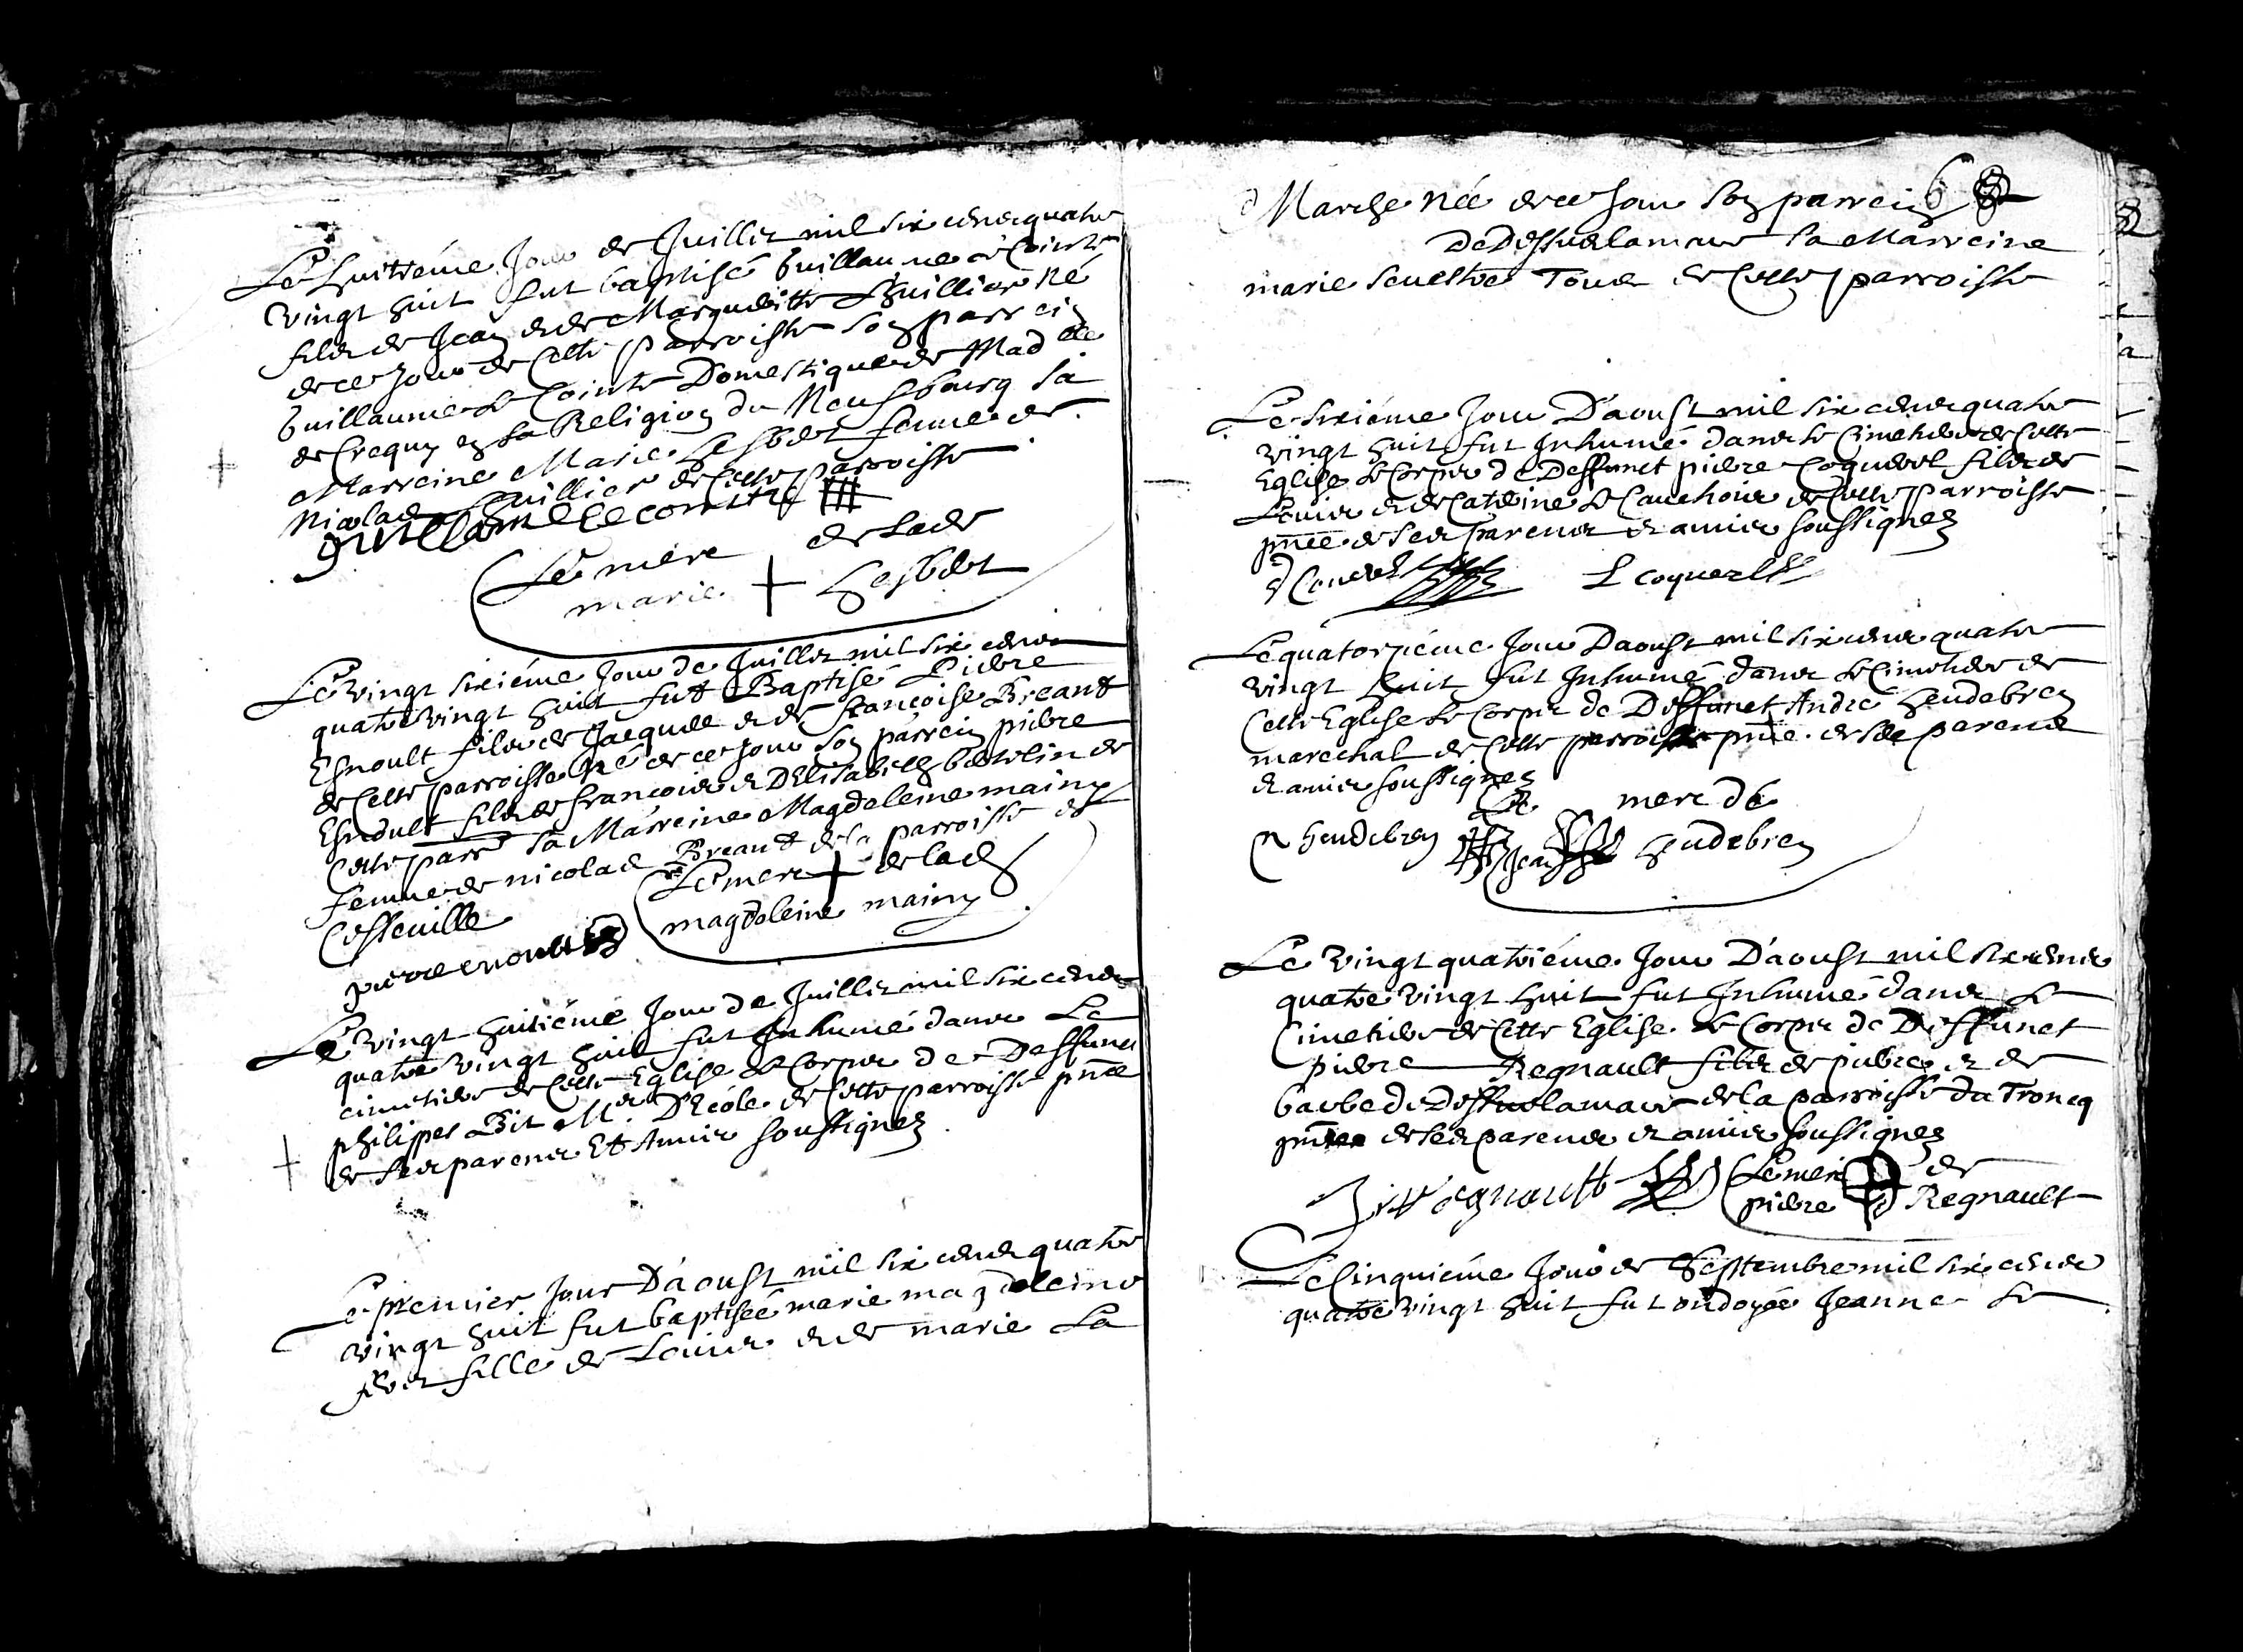 Le huitiéme Jour de Juillet mil six cens quatre
vingt huit fut baptisé Guillaume Le Cointe
fils de Jean et de Marguerite Lhuillier Né
de ce Jour de cette parroisse son parrein
Guillaume Le Cointe Domestique de Mad lle
de Crequy en la Religion du Neufbourg sa
Marreine Marie Hesbert femme de
Nicolas Lhuillier de cette parroisse
guillame le comtte
Le merc de lad
marie Hesbert
Le vingt sixiéme Jour de Juillet mil six cens
quatre vingt huit fut Baptisé Pierre
Esnoult fils de Jacques et de françoise Breant
de cette parroisse Né de ce Jour son parrein pierre
Esnoult fils de francois et D'Elisabeth de
cette parr sa Marreine Magdeleine mainy
femme de nicolas Breant de la parroisse de
Cesseville
pierre enoult
Le merc de lad
magdeleine mainy
Le vingt huitiéme Jour de Juillet mil six cens
quatre vingt huit fut Inhumé dans Le
cimetiere de cette Eglise le Corps de Deffunct
philippes Bit M. D'Ecóle de cette parroisse pnce
de ses parens Et Amis soussignez
Le premier Jour D'aoust mil six cens quatre
vingt huit fut baptisée marie magdeleine
fille de Louis et de marie La
Marche Née de ce Jour son parrein
De Dessuslamare sa Marreine
marie seuestre Tous de cette parroisse
6
Le sixiéme Jour D'aoust mil six cens quatre
vingt huit fut Inhumé dans le cimetiere de cette
Eglise le Corps de Deffunct pierre Coquerel fils de
Louis et de Caterine Le Cauchois de cette parroisse
pnce de ses Parens et amis soussignez
L coquerel
Le quatorziéme Jour Daoust mil six cens quatre
vingt huit fut Inhumé dans le Cimetiere de
cette Eglise le Corps de Deffunct André heudebren
marechal de cette parroisse pnce de ses parens
et amis soussignez
n heudebren
Le merc de
Jean heudebren
Le vingt quatriéme Jour D'aoust mil six cens
quatre vingt huit fut Inhumé dans le
Cimetiere de cette Eglise le Corps de Deffunct
pierre Regnault fils de pierre et de
barbe de Dessuslamare de la parroisse du Troncq
pnce de ses parens et amis soussignez
regnault
Le merc de
pierre Regnault
Le Cinquiéme Jour de Septembre mil six cens
quatre vingt huit fut ondoyée Jeanne Le